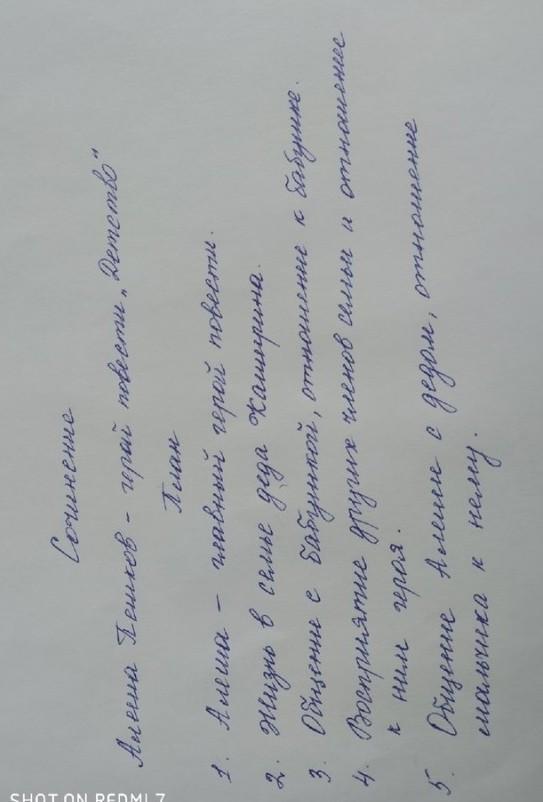 Сочинение
Алеша Пешков - герой повести „Детство"
План
1. Алеша - главный герой повести.
2. Жизнь в семье деда Каширина.
3. Общение с бабушкой, отношение к бабушке.
4. Восприятие других членов семьи и отношение
к ним героя.
5. Общение Алеши с дедом, отношение
мальчика к нему.
SHOT ON REDMI 7